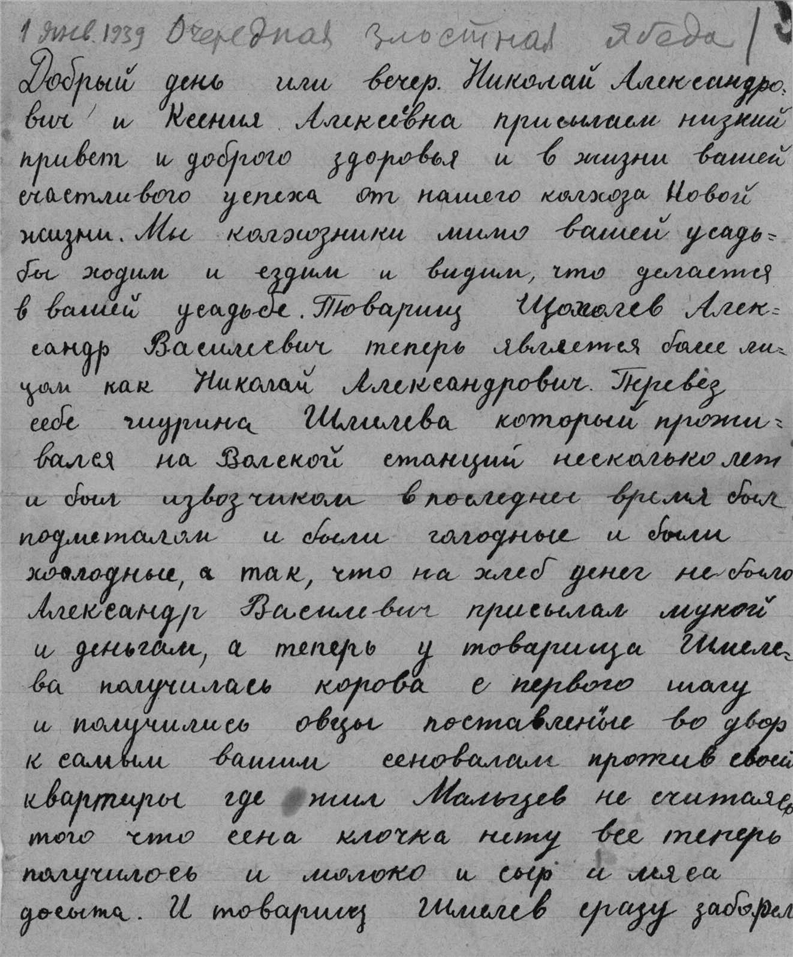 1 янв. 1939 Очередная злостная ябеда
Добрый день или вечер. Николай Александро-
вич и Ксения Алексеевна присылаем низкий
привет и доброго здоровья и в жизни вашей
счастливого успеха от нашего колхоза Новой
жизни. Мы колхозники мимо вашей усадь=
бы ходим и ездим и видим, что делается
в вашей усадьбе. Товарищ Щохолев Алек=
сандр Василиевич теперь является боле ли=
цом как Николай Александрович. Перевез
себе чиурина Шмелева который прожи=
вался на Волской станций несколько лет
и был извозчиком в последнее время был
подметалом и были голодные и были
хоолодные, а так, что на хлеб денег не было
Александр Василиевич присылал мукой
и деньгам, а теперь у товарища Шмеле=
ва получилась корова с первого шагу
и получились овцы поставленые во двор
к самым вашим сеновалам против своей
квартиры где жил Мальцев не считаясь
того что сена клочка нету все теперь
получилось и молоко и сыр и мяса
досыта. И товарищ Шмелев сразу заборел